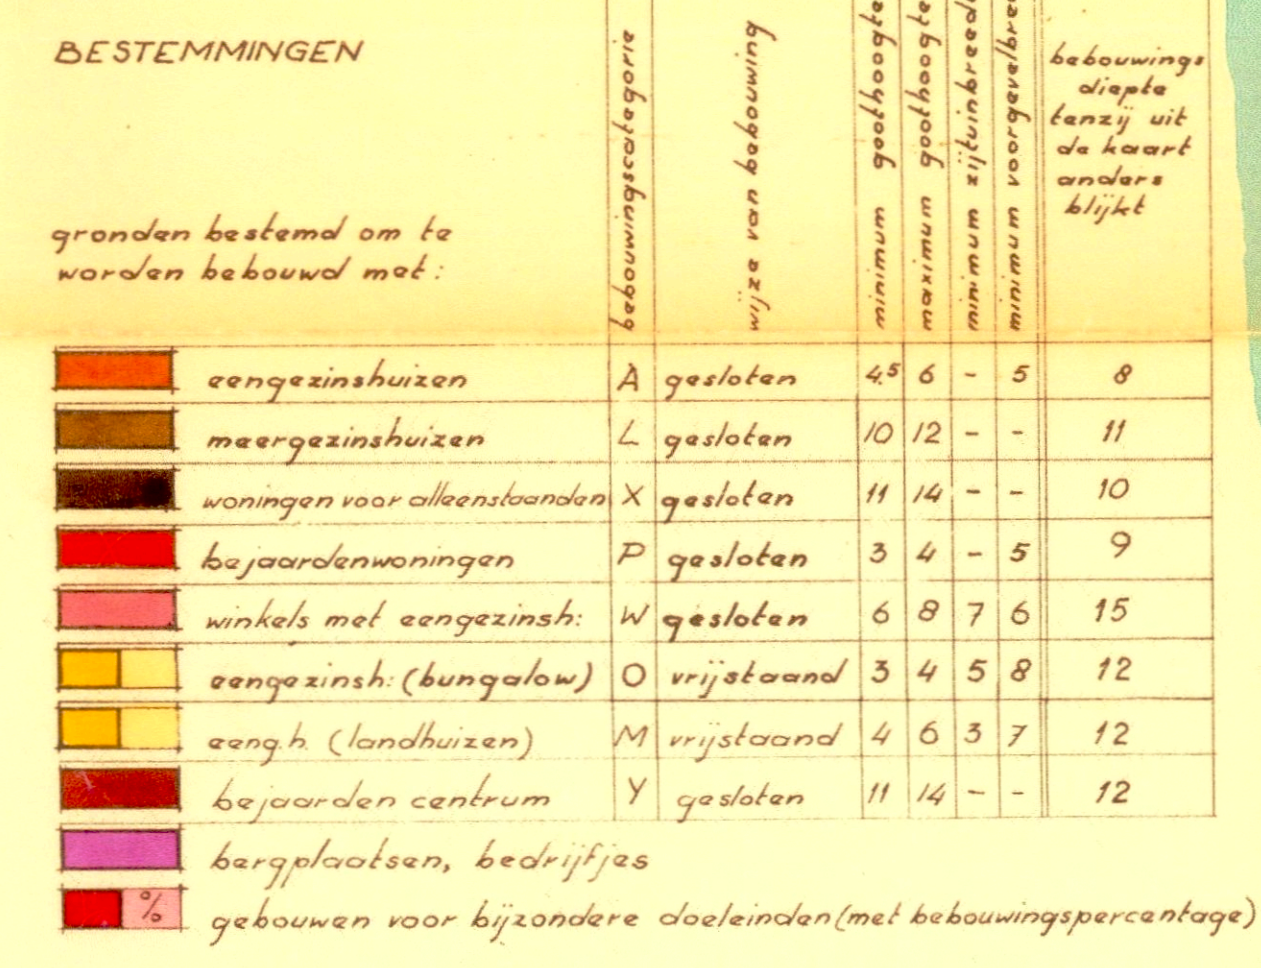 BESTEMMINGEN
gronden bestemd om te
worden bebouwd met:
bebouwingscategorie
wijze van bebouwing
minimum goothoogte
maximum goothoogte
minimum
minimum
bebouwings
diepte
tenzij uit
de kaart
anders
blijkt
eengezinshuizen A gesloten 4.5 6 - 5 8
meergezinshuizen L gesloten 10 12 - - 11
woningen voor alleenstaanden X gesloten 11 14 - - 10
bejaardenwoningen P gesloten 3 4 - 5 9
winkels met eengezinsh: W gesloten 6 8 7 6 15
eengezinsh: (bungalow) O vrijstaand 3 4 5 8 12
eeng.h. (landhuizen) M vrijstaand 4 6 3 7 12
bejaarden centrum Y gesloten 11 14 - - 12
bergplaatsen, bedrijfjes
% gebouwen voor bijzondere doeleinden (met bebouwingspercentage)